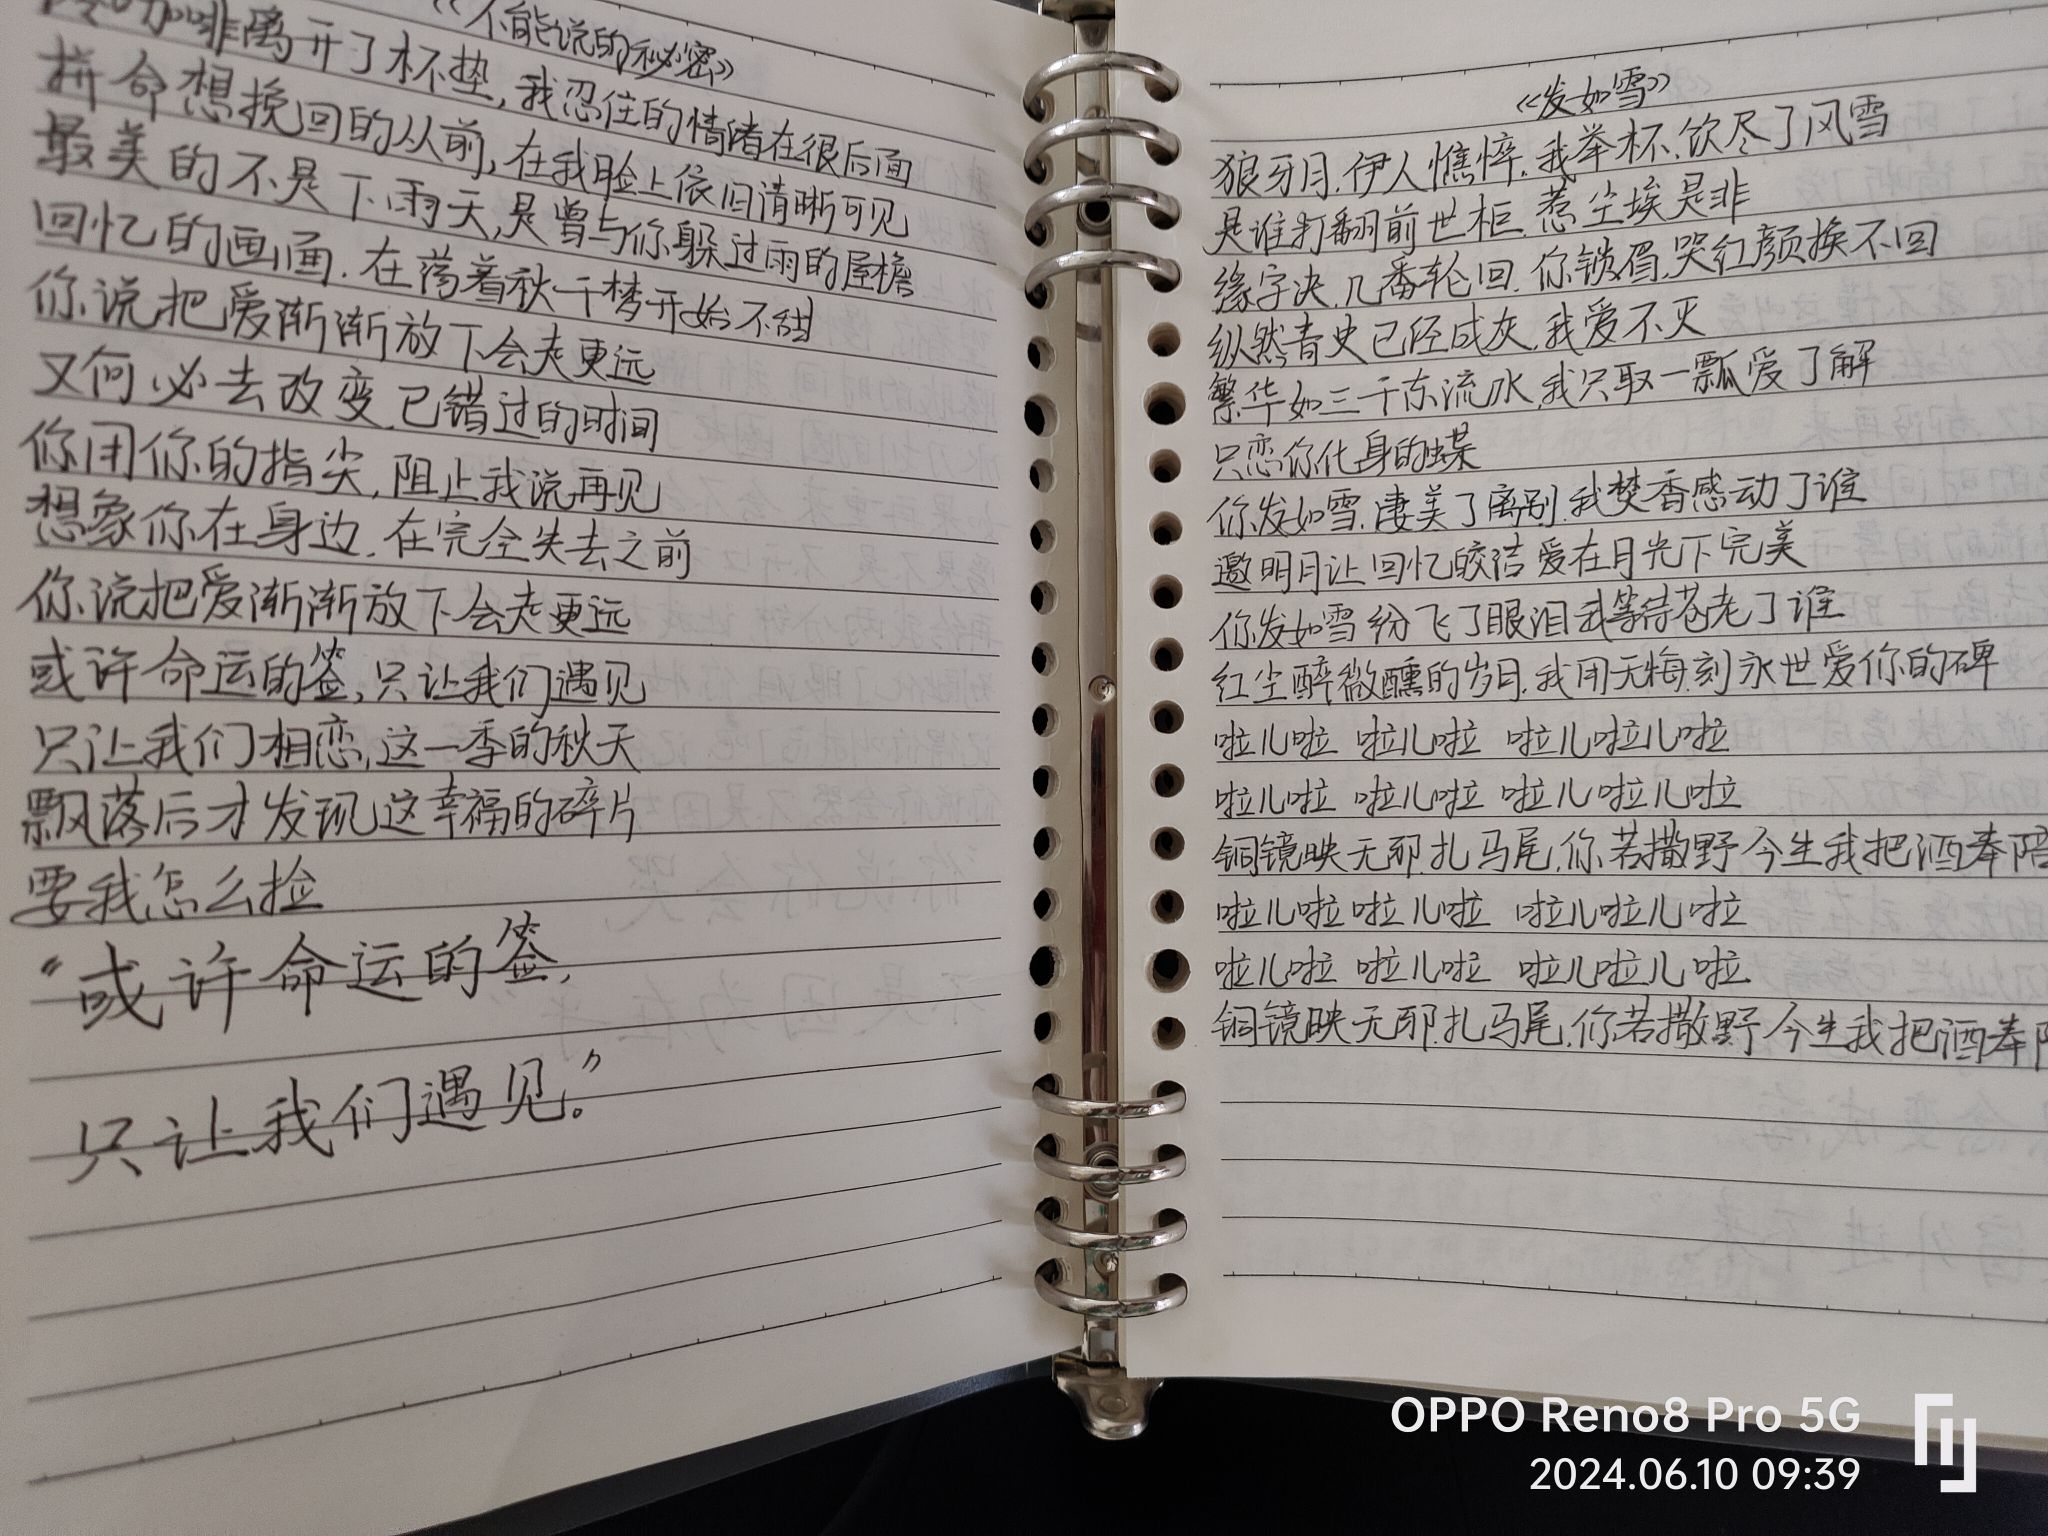 《不能说的秘密》
冷咖啡离开了杯垫,我忍住的情绪在很后面
拼命想挽回的从前,在我脸上依旧清晰可见
最美的不是下雨天,是曾与你躲过雨的屋檐
回忆的画面.在荡着秋千梦开始不甜
你说把爱渐渐放下会走更远
又何必去改变.已错过的时间
你用你的指尖,阻止我说再见
想象你在身边.在完全失去之前
你说把爱渐渐放下会走更远
或许命运的签,只让我们遇见
只让我们相恋,这一季的秋天
飘落后才发现这幸福的碎片
要我怎么捡
“或许命运的签,
只让我们遇见。”
《发如雪》
狼牙月.伊人憔悴.我举杯.饮尽了风雪
是谁打翻前世柜.惹尘埃是非
缘字决.几番轮回.你锁眉.哭红颜换不回
纵然青史已经成灰.我爱不灭
繁华如三千东流水.我只取一瓢爱了解
只恋你化身的蝶
你发如雪.凄美了离别.我焚香感动了谁
邀明月让回忆皎洁 爱在月光下完美
你发如雪 纷飞了眼泪 我等待苍老了谁
红尘醉微醺的岁月.我用无悔.刻永世爱你的碑
啦儿啦 啦儿啦 啦儿啦儿啦
啦儿啦 啦儿啦 啦儿啦儿啦
铜镜映无邪.扎马尾.你若撒野 今生我把酒奉陪
啦儿啦 啦儿啦 啦儿啦儿啦
啦儿啦 啦儿啦 啦儿啦儿啦
铜镜映无邪.扎马尾.你若撒野 今生我把酒奉
OPPO Reno8 Pro 5G
2024.06.10 09:39